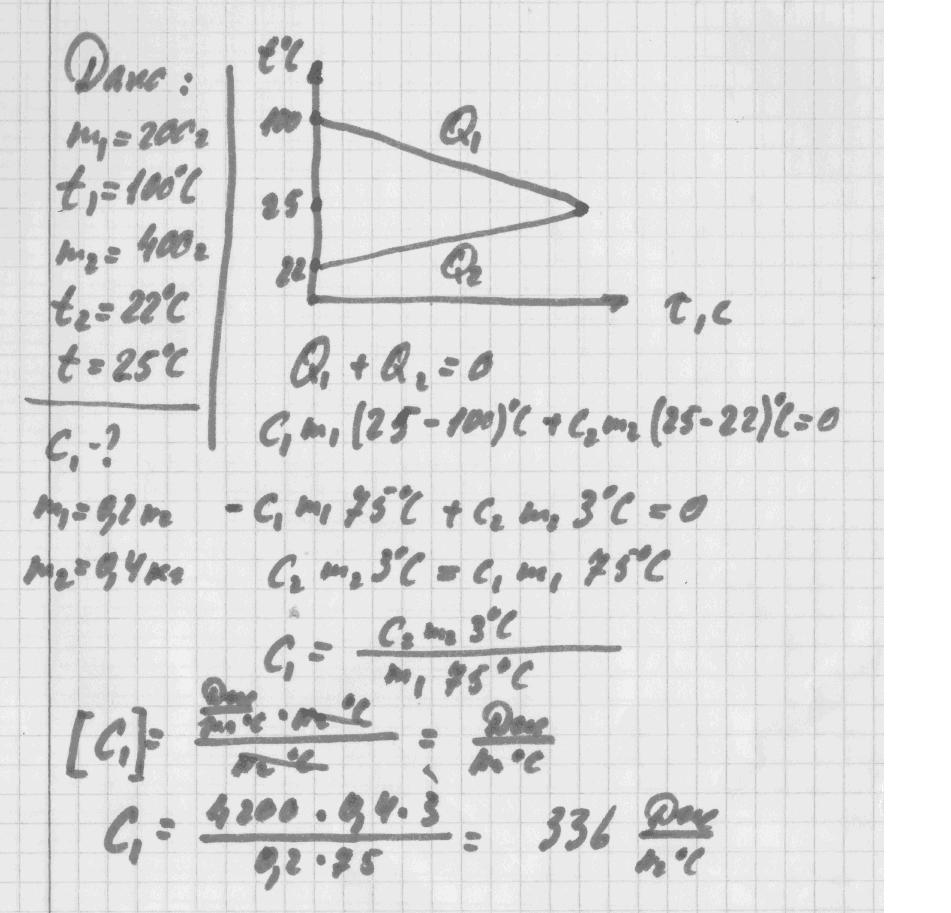 Дано:
m₁ = 200г
t₁ = 100°C
m₂ = 400г
t₂ = 22°C
t = 25°C
C₁ - ?
m₁ = 0,2 кг
m₂ = 0,4 кг
t°C
100
25
22
Q₁
Q₂
τ, c
Q₁ + Q₂ = 0
C₁ m₁ (25 - 100)°C + C₂ m₂ (25 - 22)°C = 0
- C₁ m₁ 75°C + C₂ m₂ 3°C = 0
C₂ m₂ 3°C = C₁ m₁ 75°C
C₁ = C₂ m₂ 3°C / m₁ 75°C
[C₁] = Дж/кг°C · кг °C / кг °C = Дж/кг°C
C₁ = 4200 · 0,4 · 3 / 0,2 · 75 = 336 Дж/кг°C